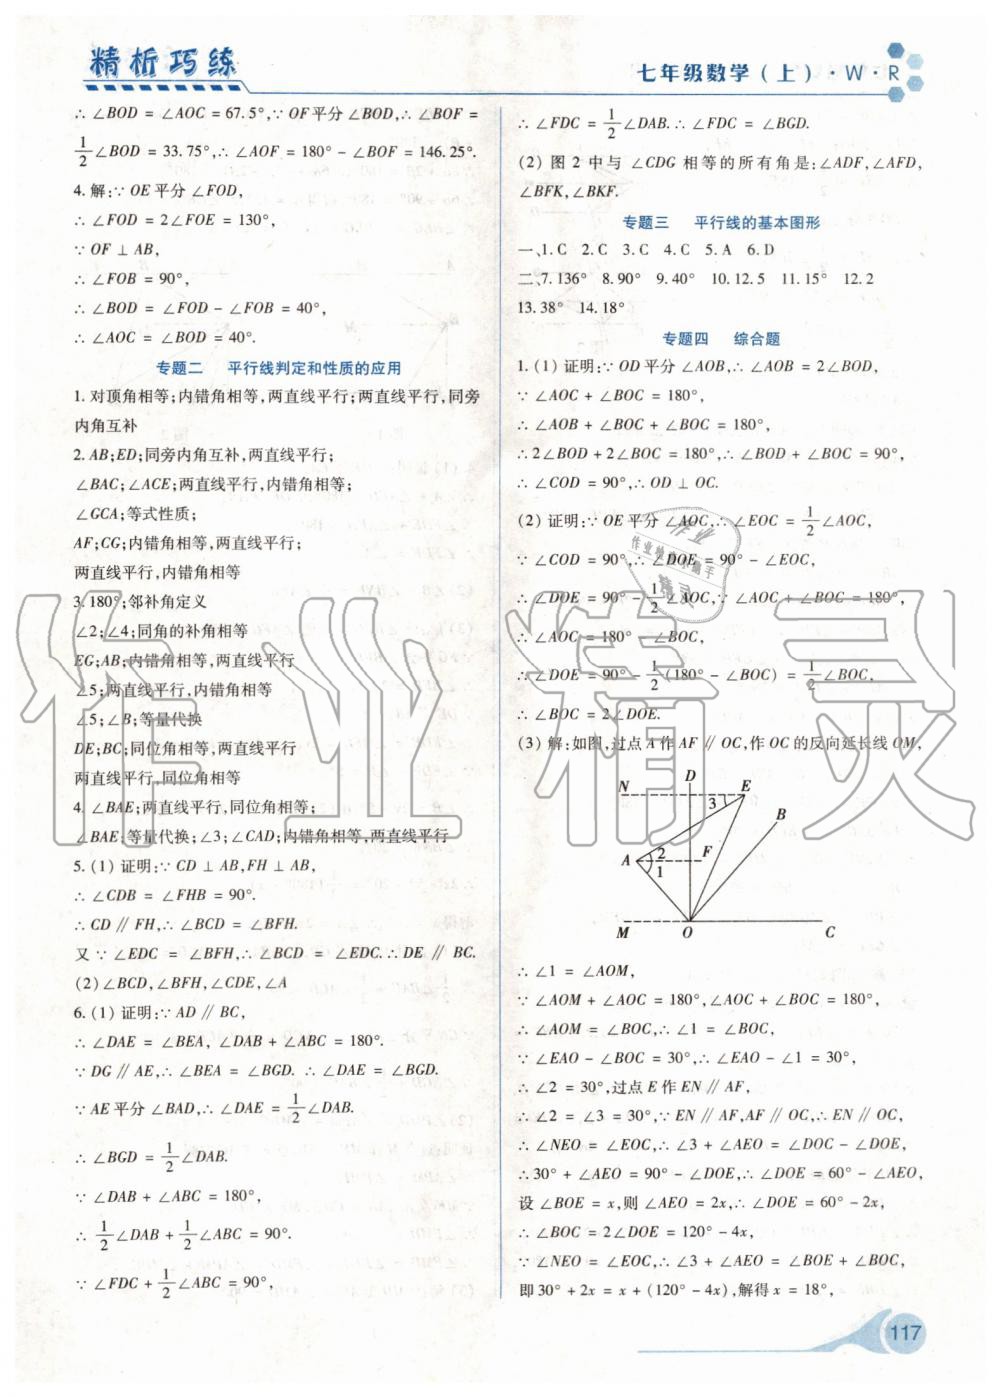 精析巧练
七年级数学(上)·W·R
∴∠BOD = ∠AOC = 67.5°,∵OF平分∠BOD,∴∠BOF =
1/2∠BOD = 33.75°,∴∠AOF = 180° - ∠BOF = 146.25°.
4. 解:∵OE平分∠FOD,
∴∠FOD = 2∠FOE = 130°,
∵OF⊥AB,
∴∠FOB = 90°,
∴∠BOD = ∠FOD - ∠FOB = 40°,
∴∠AOC = ∠BOD = 40°.
专题二 平行线判定和性质的应用
1. 对顶角相等;内错角相等,两直线平行;两直线平行,同旁
内角互补
2. AB;ED;同旁内角互补,两直线平行;
∠BAC;∠ACE;两直线平行,内错角相等;
∠GCA;等式性质;
AF;CG;内错角相等,两直线平行;
两直线平行,内错角相等
3. 180°;邻补角定义
∠2;∠4;同角的补角相等
EG;AB;内错角相等,两直线平行
∠5;两直线平行,内错角相等
∠5;∠B;等量代换
DE;BC;同位角相等,两直线平行
两直线平行,同位角相等
4. ∠BAE;两直线平行,同位角相等;
∠BAE;等量代换;∠3;∠CAD;内错角相等,两直线平行
5. (1) 证明:∵CD⊥AB,FH⊥AB,
∴∠CDB = ∠FHB = 90°.
∴CD∥FH,∴∠BCD = ∠BFH.
又∵∠EDC = ∠BFH,∴∠BCD = ∠EDC.∴DE∥BC.
(2)∠BCD,∠BFH,∠CDE,∠A
6. (1) 证明:∵AD∥BC,
∴∠DAE = ∠BEA, ∠DAB + ∠ABC = 180°.
∵DG∥AE,∴∠BEA = ∠BGD. ∴∠DAE = ∠BGD.
∵AE平分∠BAD,∴∠DAE = 1/2∠DAB.
∴∠BGD = 1/2∠DAB.
∵∠DAB + ∠ABC = 180°,
∴1/2∠DAB + 1/2∠ABC = 90°.
∵∠FDC + 1/2∠ABC = 90°,
∴∠FDC = 1/2∠DAB.∴∠FDC = ∠BGD.
(2) 图2中与∠CDG相等的所有角是:∠ADF,∠AFD,
∠BFK,∠BKF.
专题三 平行线的基本图形
一、1. C 2. C 3. C 4. C 5. A 6. D
二、7. 136° 8. 90° 9. 40° 10. 12.5 11. 15° 12. 2
13. 38° 14. 18°
专题四 综合题
1. (1) 证明:∵OD平分∠AOB,∴∠AOB = 2∠BOD,
∵∠AOC + ∠BOC = 180°,
∴∠AOB + ∠BOC + ∠BOC = 180°,
∴2∠BOD + 2∠BOC = 180°,∴∠BOD + ∠BOC = 90°,
∴∠COD = 90°,∴OD⊥OC.
(2) 证明:∵OE平分∠AOC,∴∠EOC = 1/2∠AOC,
∵∠COD = 90°,∴∠DOE = 90° - ∠EOC,
∴∠DOE = 90° - 1/2∠AOC,∵∠AOC + ∠BOC = 180°,
∴∠AOC = 180° - ∠BOC,
∴∠DOE = 90° - 1/2(180° - ∠BOC) = 1/2∠BOC.
∴∠BOC = 2∠DOE.
(3) 解:如图,过点A作AF∥OC,作OC的反向延长线OM,
N D E
3 B
A 2 F
1
M O C
∴∠1 = ∠AOM,
∵∠AOM + ∠AOC = 180°,∠AOC + ∠BOC = 180°,
∴∠AOM = ∠BOC,∴∠1 = ∠BOC,
∵∠EAO - ∠BOC = 30°,∴∠EAO - ∠1 = 30°,
∴∠2 = 30°,过点E作EN∥AF,
∴∠2 = ∠3 = 30°,∵EN∥AF,AF∥OC,∴EN∥OC,
∴∠NEO = ∠EOC,∴∠3 + ∠AEO = ∠DOC - ∠DOE,
∴30° + ∠AEO = 90° - ∠DOE,∴∠DOE = 60° - ∠AEO,
设∠BOE = x,则∠AEO = 2x,∴∠DOE = 60° - 2x,
∴∠BOC = 2∠DOE = 120° - 4x,
∵∠NEO = ∠EOC,∴∠3 + ∠AEO = ∠BOE + ∠BOC,
即30° + 2x = x + (120° - 4x),解得x = 18°,
117
作业精灵